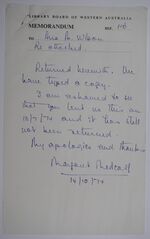 LIBRARY BOARD OF WESTERN AUSTRALIA
MEMORANDUM
REF.
TO Mrs A. Wilson
Re attached.
Returned herewith. We
have typed a copy.
I am ashamed to see
that you lent us this on
10/7/74 and it has still
not been returned.
My apologies and thanks
Margaret Medcalf
14/10/74